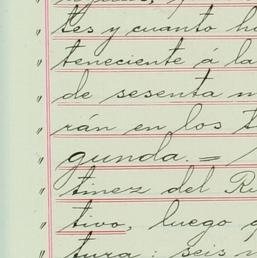 tes y cuanto h
teneciente á la
de sesenta m
rán en los t
gunda. =
tinez del R
tivo, luego
tura: seis